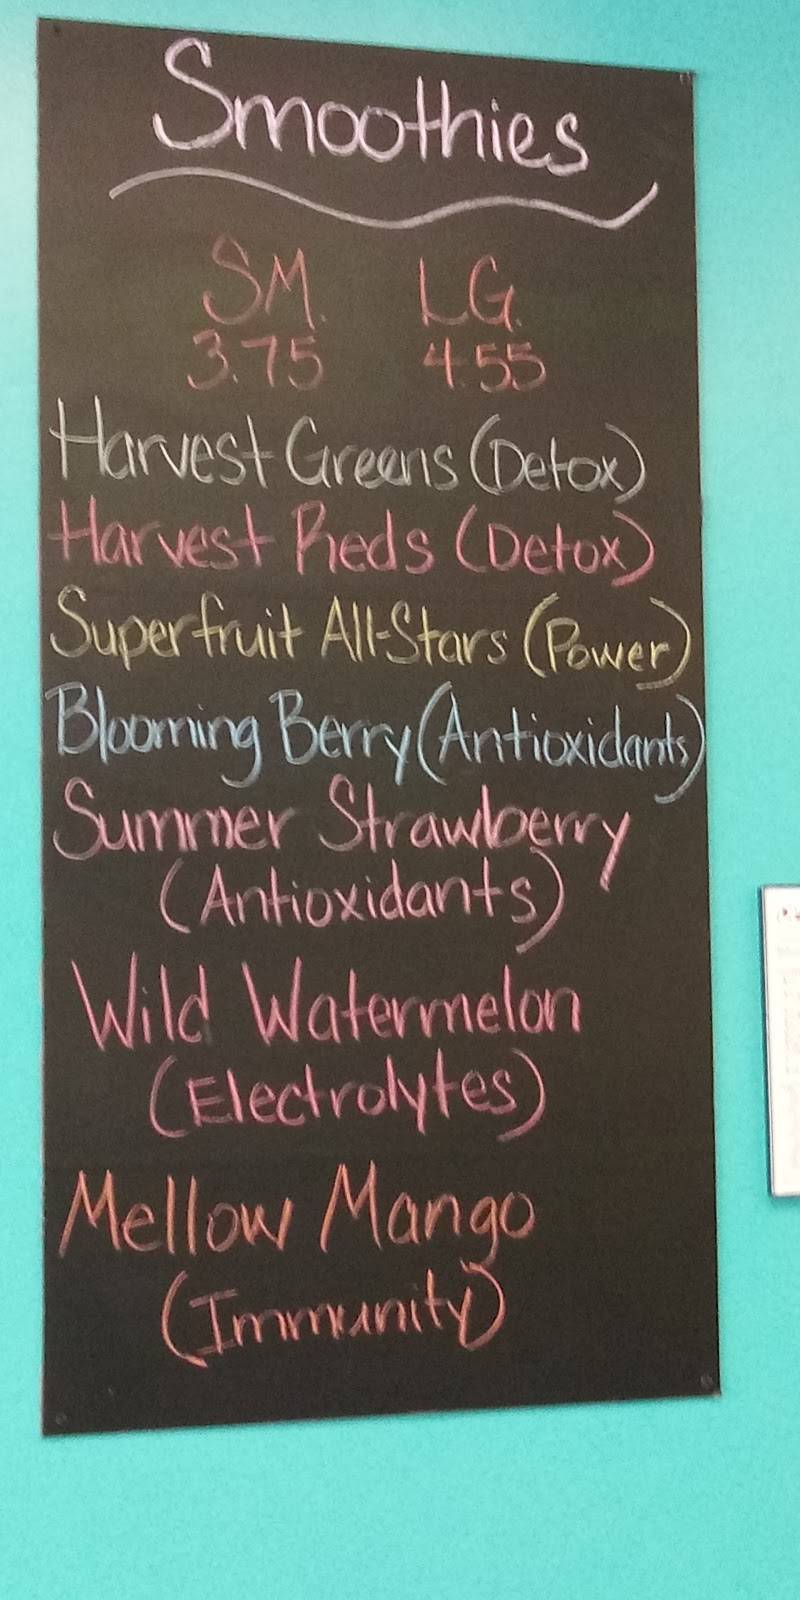 Smoothies
SM. LG.
3.75 4.55
Harvest Greens (Detox)
Harvest Reds (Detox)
Superfruit All-Stars (Power)
Blooming Berry (Antioxidants)
Summer Strawberry
(Antioxidants)
Wild Watermelon
(Electrolytes)
Mellow Mango
(Immunity)